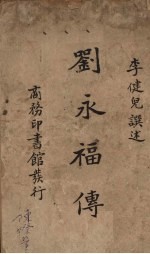 李健兒譔述
劉永福傳
商務印書館發行